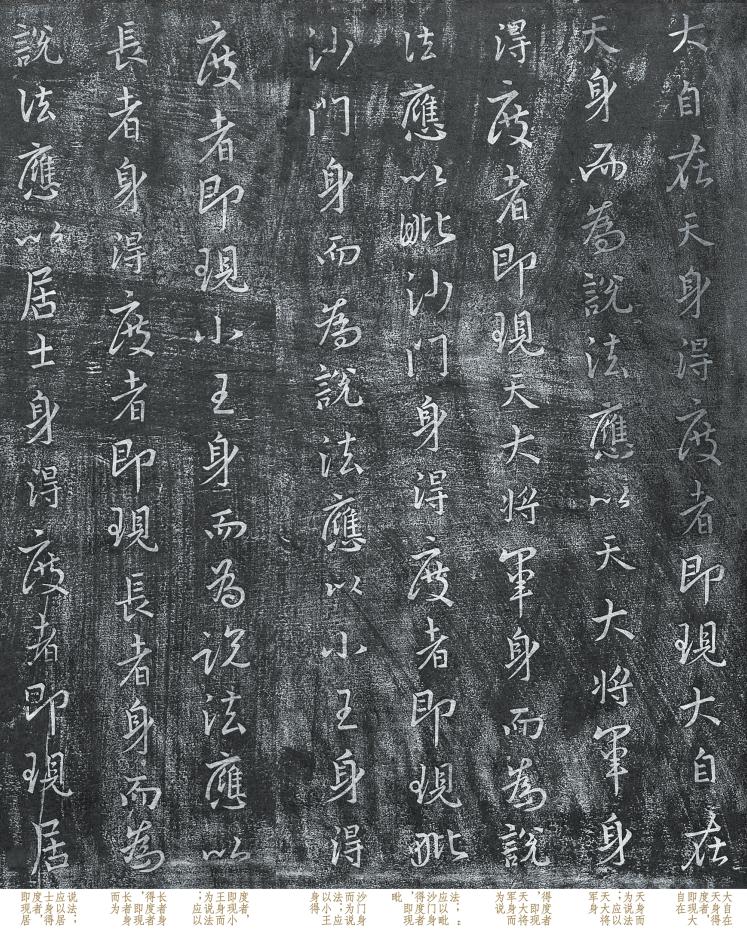 大自在天身得度者即現大自在
天身而為說法應以天大将軍身
得度者即現天大将軍身而為說
法應以毗沙門身得度者即現毗
沙門身而為說法應以小王身得
度者即現小王身而為說法應以
長者身得度者即現長者身而為
說法應以居士身得度者即現居
大自在
天身得
度者，
即现大
自在
天身而
为说法
；应以
天大将
军身
得度者
，即现
天大将
军身而
为说
法；
应以毗
沙门身
得度者
，即现
毗
沙门身
而为说
法；应
以小王
身得
度者，
即现小
王身而
为说法
；应以
长者身
得度者
，即现
长者身
而为
说法；
应以居
士身得
度者，
即现居